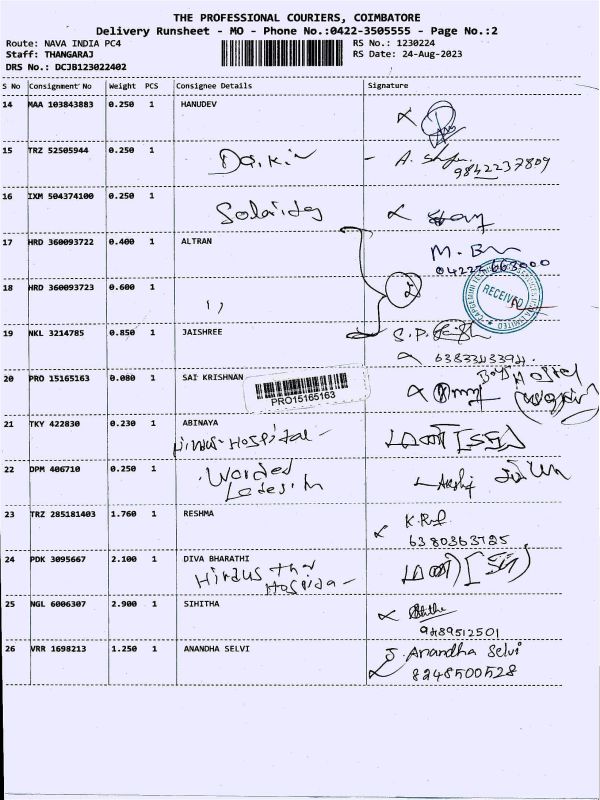 THE PROFESSIONAL COURIERS, COIMBATORE
Delivery Runsheet - MO - Phone No.:0422-3505555 - Page No.:2
Route: NAVA INDIA PC4
Staff: THANGARAJ
DRS No.: DCJB123022402
RS No.: 1230224
RS Date: 24-Aug-2023
S No Consignment No Weight PCS Consignee Details Signature
14 MAA 103843883 0.250 1 HANUDEV
15 TRZ 52505944 0.250 1
Daikin
9842237809
16 IXM 504374100 0.250 1
17 HRD 360093722 0.400 1 ALTRAN
18 HRD 360093723 0.600 1
RECEIVED
19 NKL 3214785 0.850 1 JAISHREE
S.P.
20 PRO 15165163 0.080 1 SAI KRISHNAN
PRO15165163
Boys Hostel
21 TKY 422830 0.230 1 ABINAYA
Hospital
22 DPM 406710 0.250 1
23 TRZ 285181403 1.760 1 RESHMA
6380363785
24 PDK 3095667 2.100 1 DIVA BHARATHI
25 NGL 6006307 2.900 1 SIHITHA
9489512501
26 VRR 1698213 1.250 1 ANANDHA SELVI
J. Anandha Selvi
8248500528